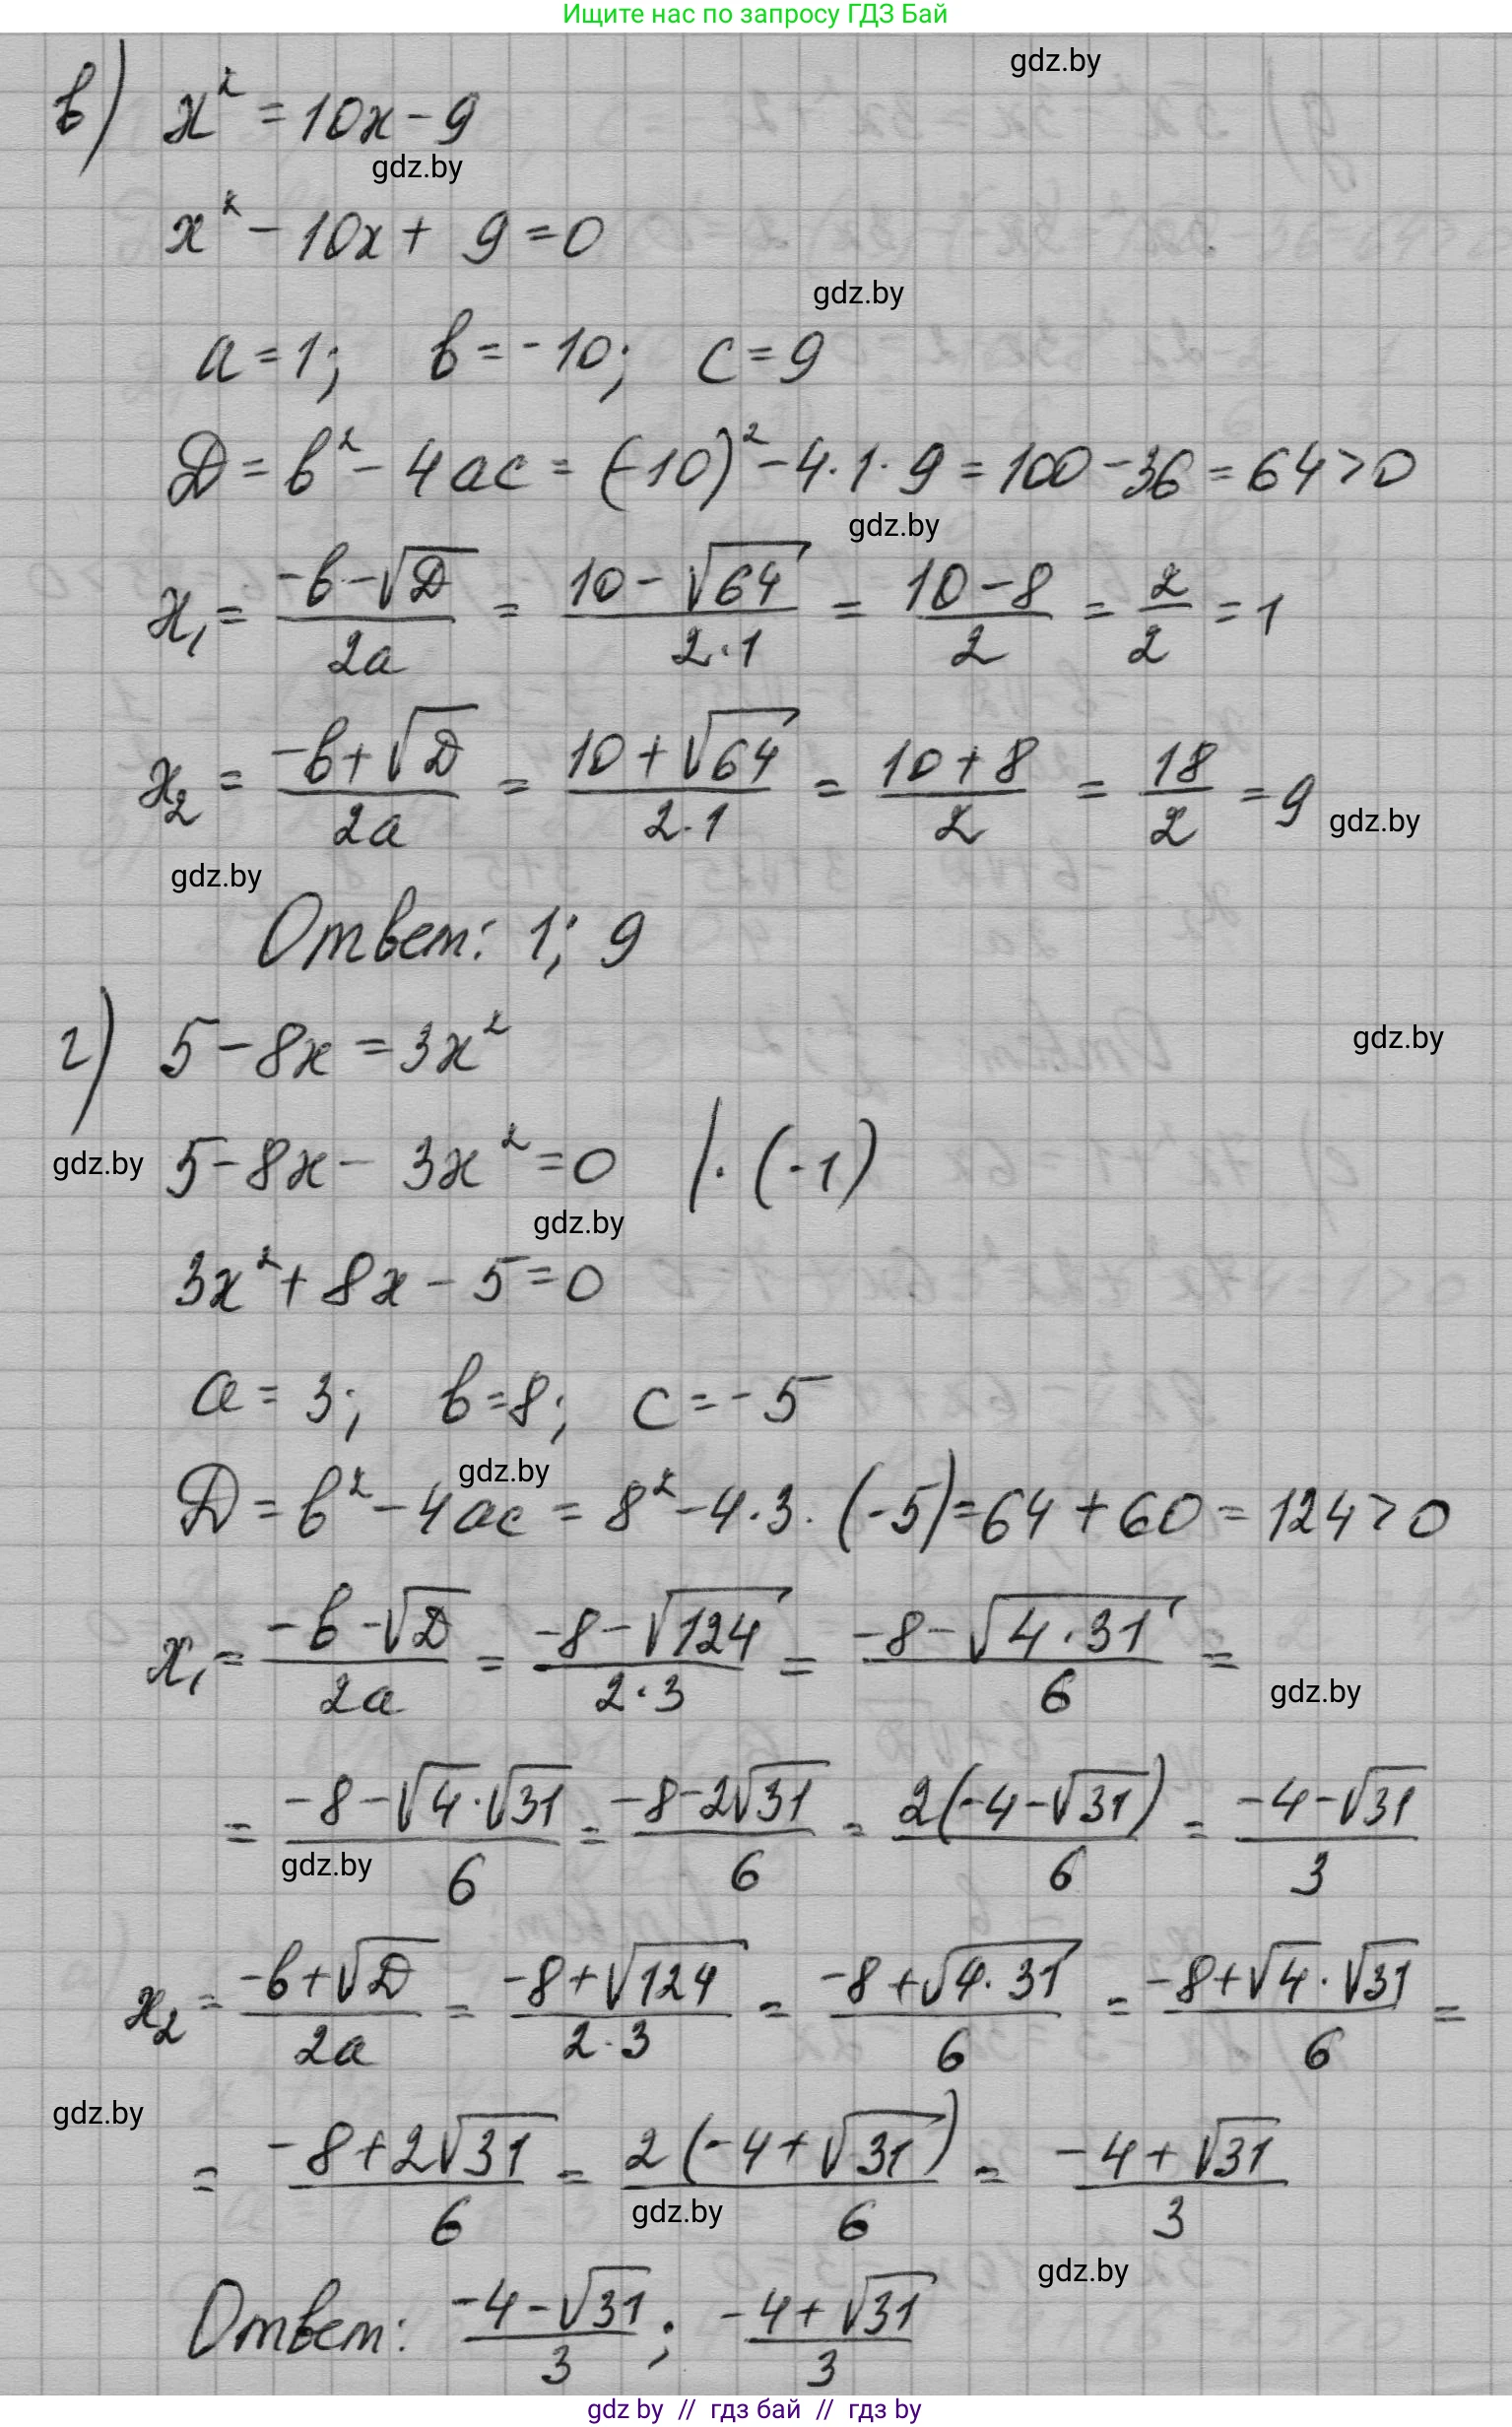 Ищите нас по запросу ГДЗ Бай
gdz.by
в) x² = 10x - 9
gdz.by
x² - 10x + 9 = 0
gdz.by
a = 1; b = -10; c = 9
D = b² - 4ac = (-10)² - 4·1·9 = 100 - 36 = 64 > 0
gdz.by
x₁ = (-b - √D)/(2a) = (10 - √64)/(2·1) = (10 - 8)/2 = 2/2 = 1
x₂ = (-b + √D)/(2a) = (10 + √64)/(2·1) = (10 + 8)/2 = 18/2 = 9
gdz.by
gdz.by
Ответ: 1; 9
г) 5 - 8x = 3x²
gdz.by
5 - 8x - 3x² = 0 |·(-1)
gdz.by
gdz.by
3x² + 8x - 5 = 0
a = 3; b = 8; c = -5
gdz.by
D = b² - 4ac = 8² - 4·3·(-5) = 64 + 60 = 124 > 0
x₁ = (-b - √D)/(2a) = (-8 - √124)/(2·3) = (-8 - √(4·31))/6 =
gdz.by
= (-8 - √4·√31)/6 = (-8 - 2√31)/6 = 2(-4 - √31)/6 = (-4 - √31)/3
gdz.by
x₂ = (-b + √D)/(2a) = (-8 + √124)/(2·3) = (-8 + √(4·31))/6 = (-8 + √4·√31)/6 =
gdz.by
= (-8 + 2√31)/6 = 2(-4 + √31)/6 = (-4 + √31)/3
gdz.by
gdz.by
Ответ: (-4 - √31)/3; (-4 + √31)/3
gdz by // гдз бай // гдз by